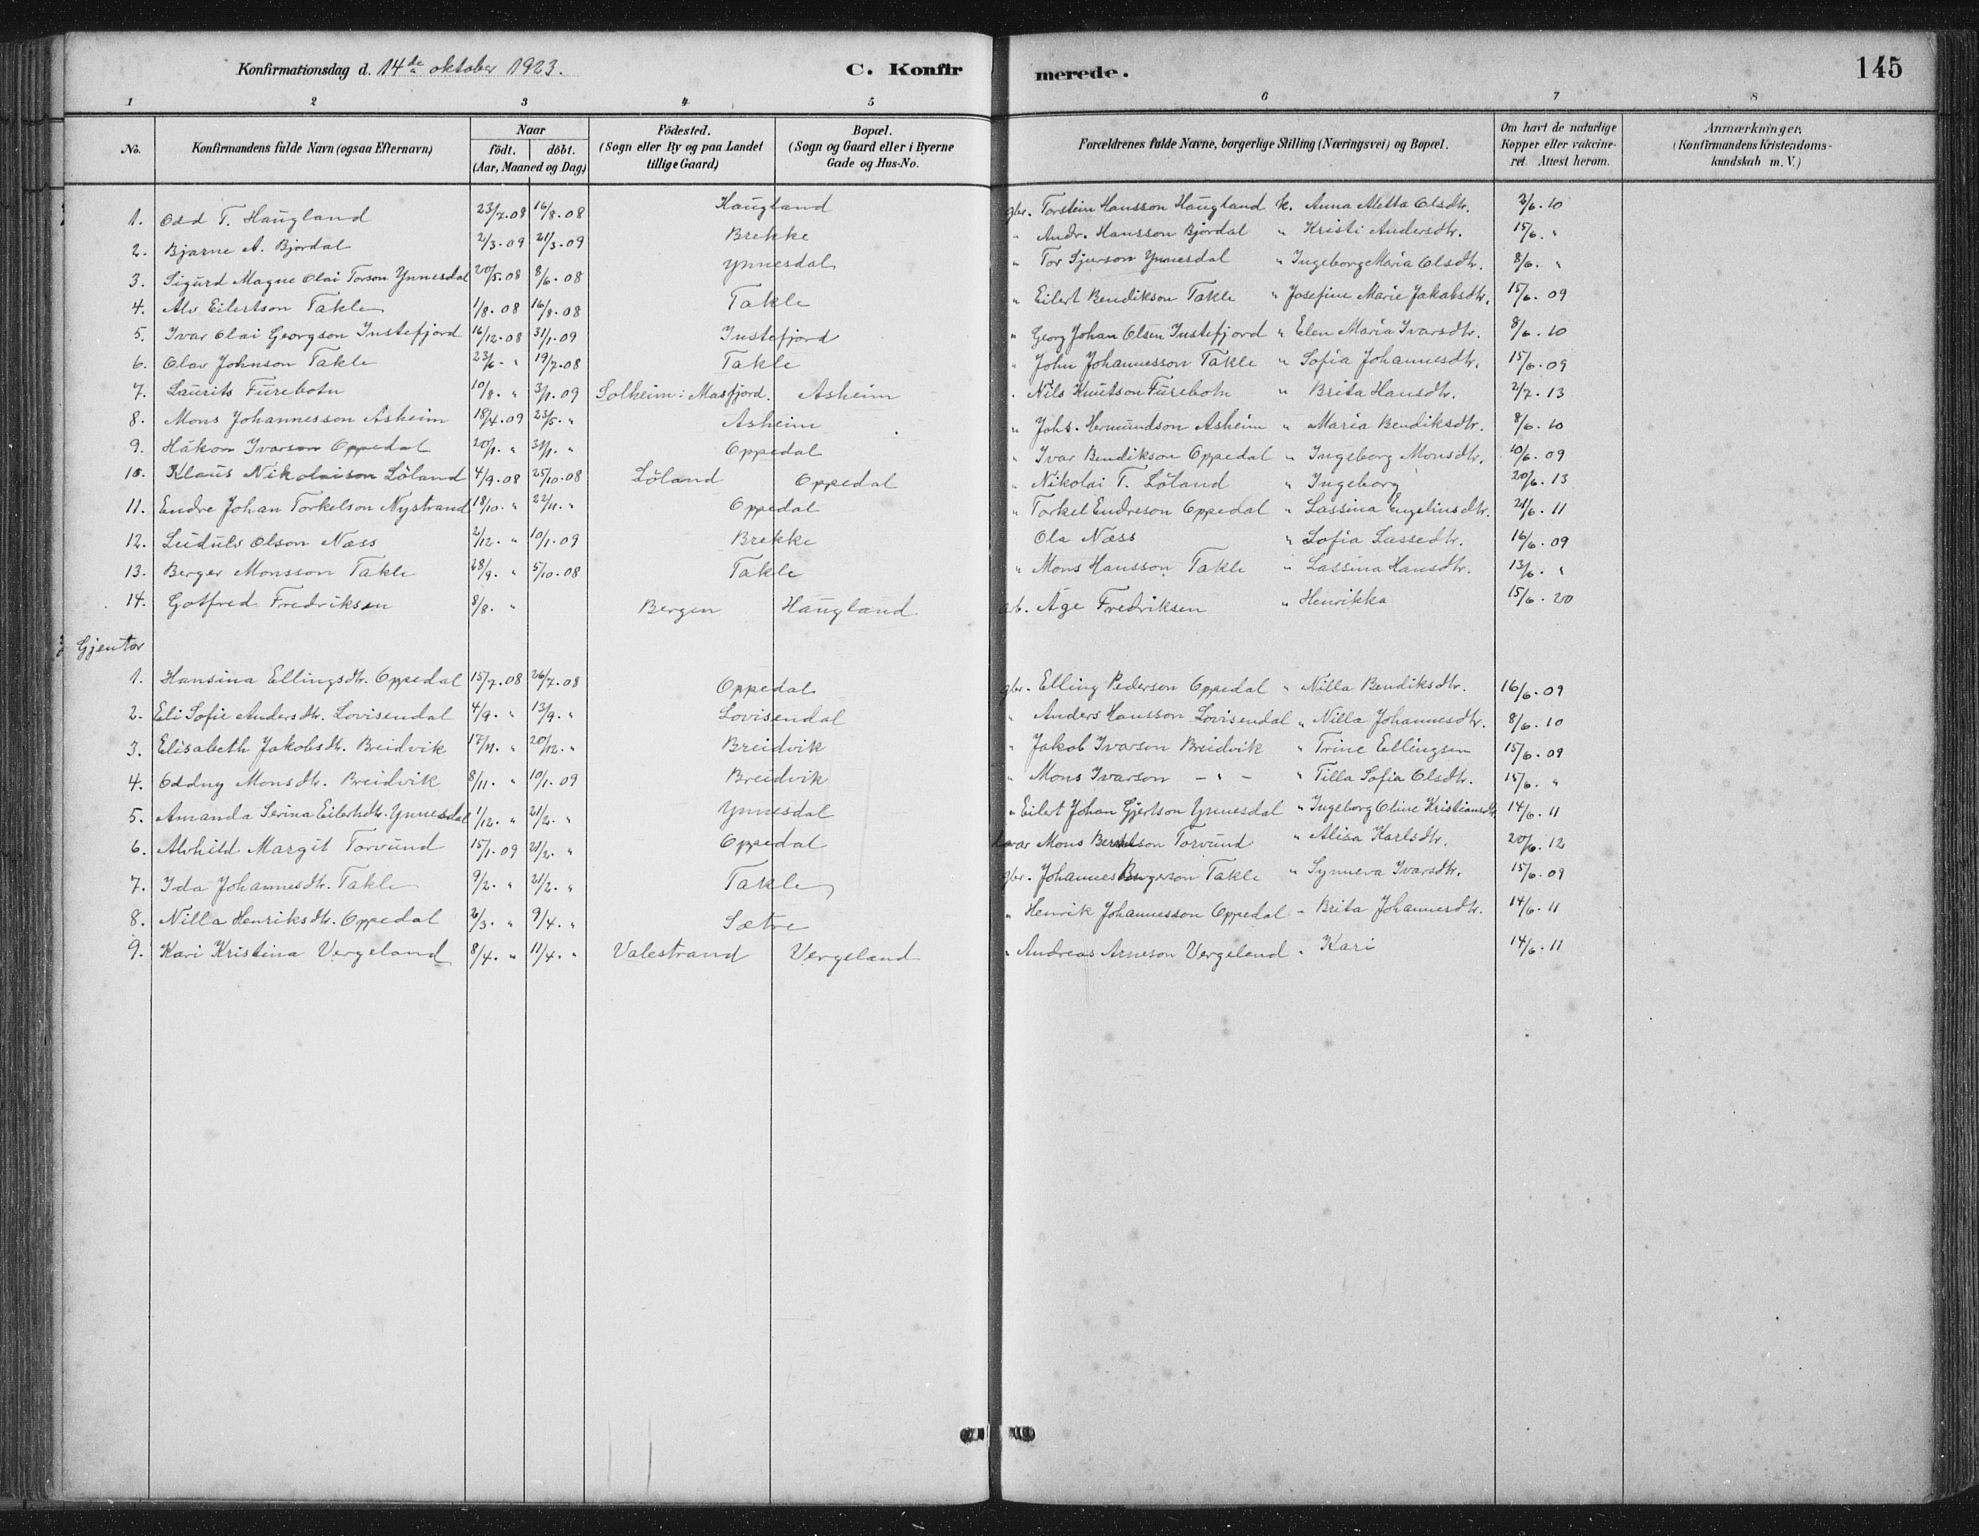 Konfirmationsdag d. 14de oktober 1923. C. Konfirmerede. 145
1 2 3 4 5 6 7 8
No. Konfirmandens fulde Navn (ogsaa Efternavn) Naar födt. döbt. (Aar, Maaned og Dag) Födested. (Sogn eller By og paa Landet tillige Gaard) Bopæl. (Sogn og Gaard eller i Byerne Gade og Hus-No. Forældrenes fulde Navne, borgerlige Stilling (Næringsvei) og Bopæl. Om havt de naturlige Kopper eller vakcineret. Attest herom. Anmærkninger. (Konfirmandens Kristendomskundskab m. V.)
1. Odd T. Haugland 23/7.08 16/8.08 Haugland gbr. Torstein Hansson Haugland k. Anna Metta Olsdtr. 2/6.10
2. Bjarne A. Bjordal 2/3.09 21/3.09 Brekke " Andr. Hansson Bjordal " Kristi Andersdtr. 15/6. "
3. Sigurd Magne Olai Torson Ynnesdal 20/5.08 8/6.08 Ynnesdal " Tor Sjurson Ynnesdal " Ingeborg Maria Olsdtr. 8/6. "
4. Alv Eilertson Takle 1/8.08 16/8.08 Takle " Eilert Bendikson Takle " Josefine Marie Jakobsdtr. 15/6.09
5. Ivar Olai Georgson Instefjord 16/12.08 31/1.09 Instefjord " Georg Johan Olsen Instefjord " Elen Maria Ivarsdtr. 8/6.10
6. Olav Johnson Takle 23/6. " 19/7.08 Takle " John Johannesson Takle " Sofia Johannesdtr. 15/6.09
7. Laurits Furebotn 10/8. " 3/1.09 Solheim: Masfjord. Asheim " Nils Knutson Furebotn " Brita Hansdtr. 2/7.13
8. Mons Johannesson Asheim 18/4.09 23/5. " Asheim " Johs. Hermundson Asheim " Maria Bendiksdtr. 8/6.10
9. Håkon Ivarson Oppedal 20/1. " 31/1. " Oppedal " Ivar Bendikson Oppedal " Ingeborg Monsdtr. 10/6.09
10. Klaus Nikolaison Löland 4/9.08 25/10.08 Löland Oppedal " Nikolai T. Löland " Ingeborg 20/6.13
11. Endre Johan Torkelson Nystrand 18/10. " 22/11. " Oppedal " Torkel Endreson Oppedal " Lassina Engelinsdtr. 21/6.11
12. Leidulv Olson Næss 2/12. " 10/1.09 Brekke Ola Næss " Sofia Lassedtr. 16/6.09
13. Berger Monsson Takle 28/9. " 5/10.08 Takle " Mons Hansson Takle " Lassina Hansdtr. 13/6. "
14. Gotfred Fredriksen 8/8. " Bergen Haugland arb. Åge Fredriksen " Henrikka 15/6.20
Gjentor
1. Hansina Ellingsdtr. Oppedal 15/7.08 26/7.08 Oppedal gbr. Elling Pederson Oppedal " Nilla Bendiksdtr. 16/6.09
2. Eli Sofie Andersdtr. Lovisendal 4/9. " 13/9. " Lovisendal " Anders Hansson Lovisendal " Nilla Johannesdtr. 8/6.10
3. Elisabeth Jakobsdtr. Breidvik 17/11. " 20/12. " Breidvik " Jakob Ivarson Breidvik " Trine Ellingsen 15/6.09
4. Oddny Monsdtr. Breidvik 8/11. " 10/1.09 Breidvik " Mons Ivarson - " - " Tilla Sofia Olsdtr. 15/6. "
5. Amanda Serina Eilertsdtr. Ynnesdal 1/12. " 21/2. " Ynnesdal " Eilert Johan Gjertson Ynnesdal " Ingeborg Oline Kristiansdtr. 14/6.11
6. Alvhild Margit Torvund 15/1.09 21/2. " Oppedal Mons Torvund " Alisa Karlsdtr. 20/6.12
7. Ida Johannesdtr. Takle 9/2. " 21/2. " Takle gbr. Johannes Takle " Synneva Ivarsdtr. 15/6.09
8. Nilla Henriksdtr. Oppedal 2/3. " 9/4. " Sætre " Henrik Johannesson Oppedal - Brita Johannesdtr. 14/6.11
9. Kari Kristina Vergeland 8/4. " 11/4. " Valestrand Vergeland " Andreas Arneson Vergeland " Kari 14/6.11